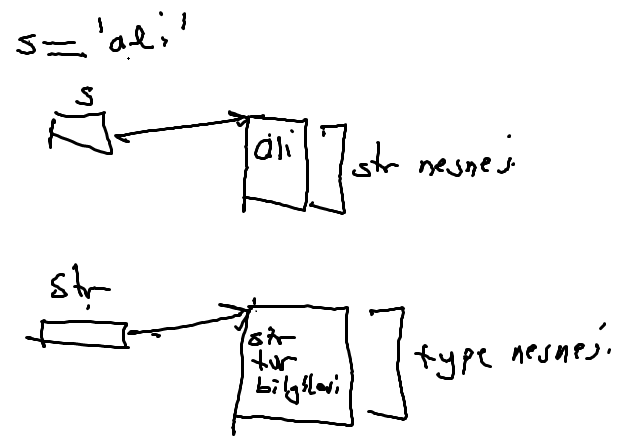 s = 'ali'
s
ali
str nesnesi
str
str
tür
bilgileri
type nesnesi